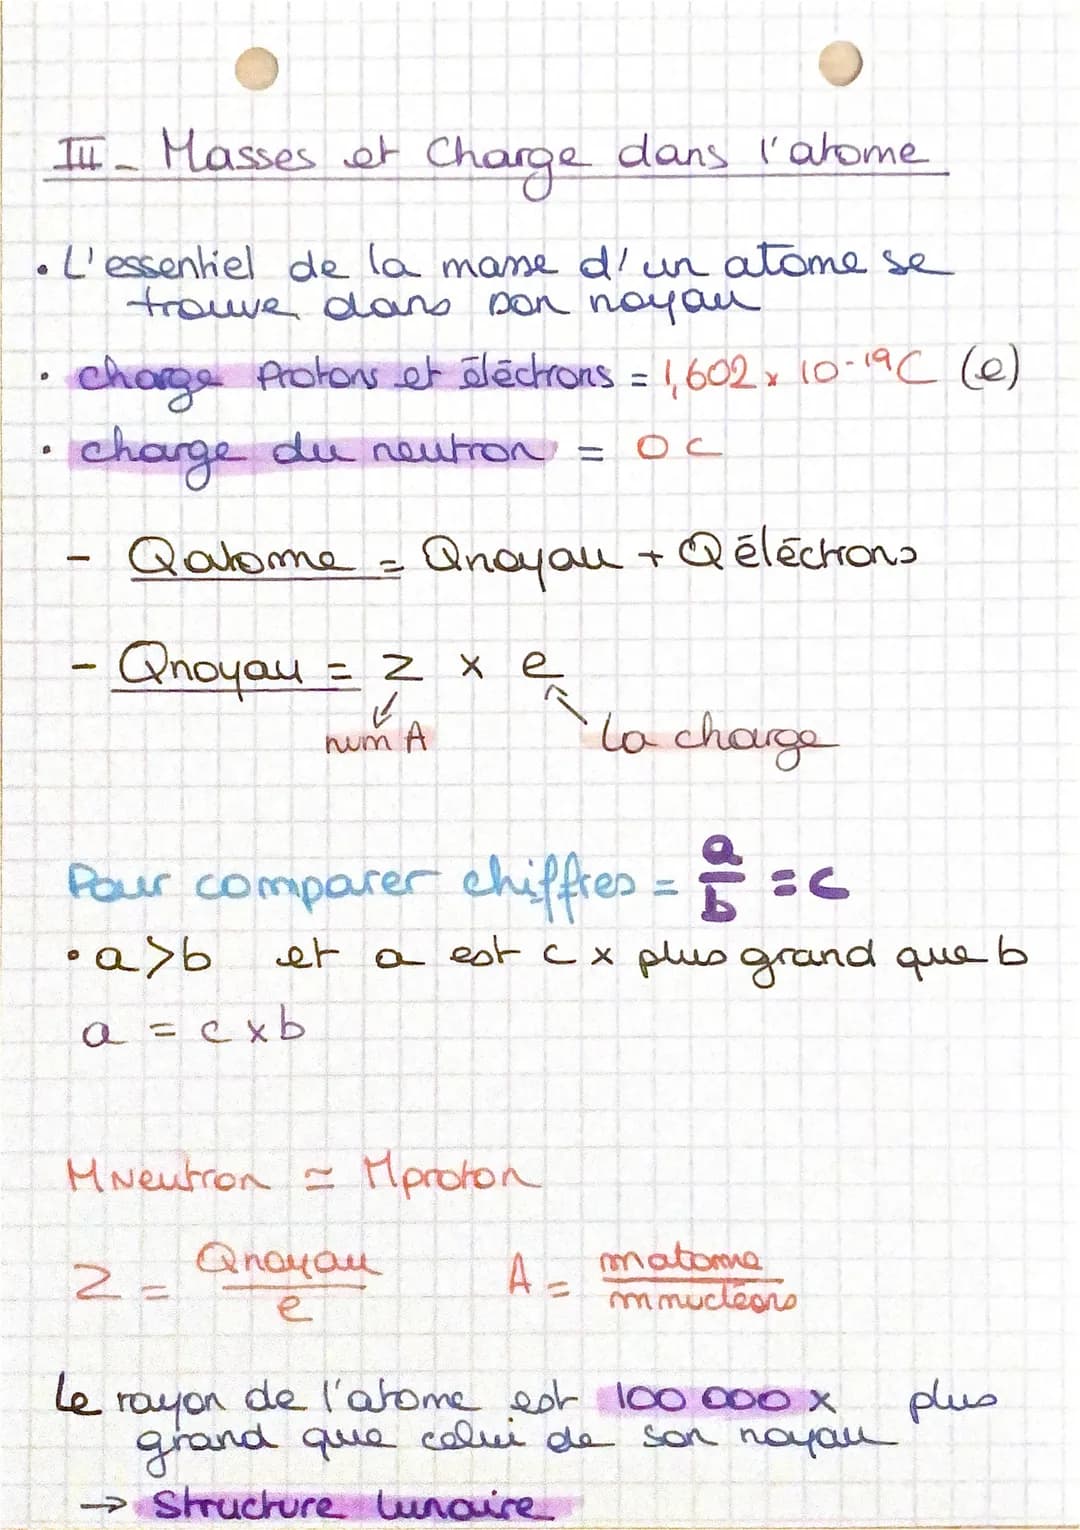 III - Masses et Charge dans l'atome
• L'essentiel de la masse d'un atome se
trouve dans son noyau
• charge Protons et éléctrons = 1,602 x 10-19C (e)
• charge du neutron = 0 C
- Qatome = Qnoyau + Q éléctrons
- Qnoyau = Z x e
num A
la charge
Pour comparer chiffres = a/b = c
• a>b et a est c x plus grand que b
a = c x b
MNeutron ≃ Mproton
Z = Qnoyau/e A = matome/mnucléons
Le rayon de l'atome est 100 000 x plus
grand que celui de son noyau
→ Structure lunaire